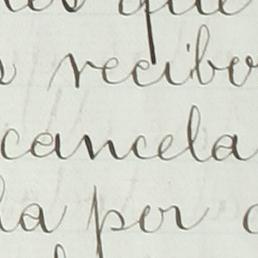 que
recibo
cancela
la por